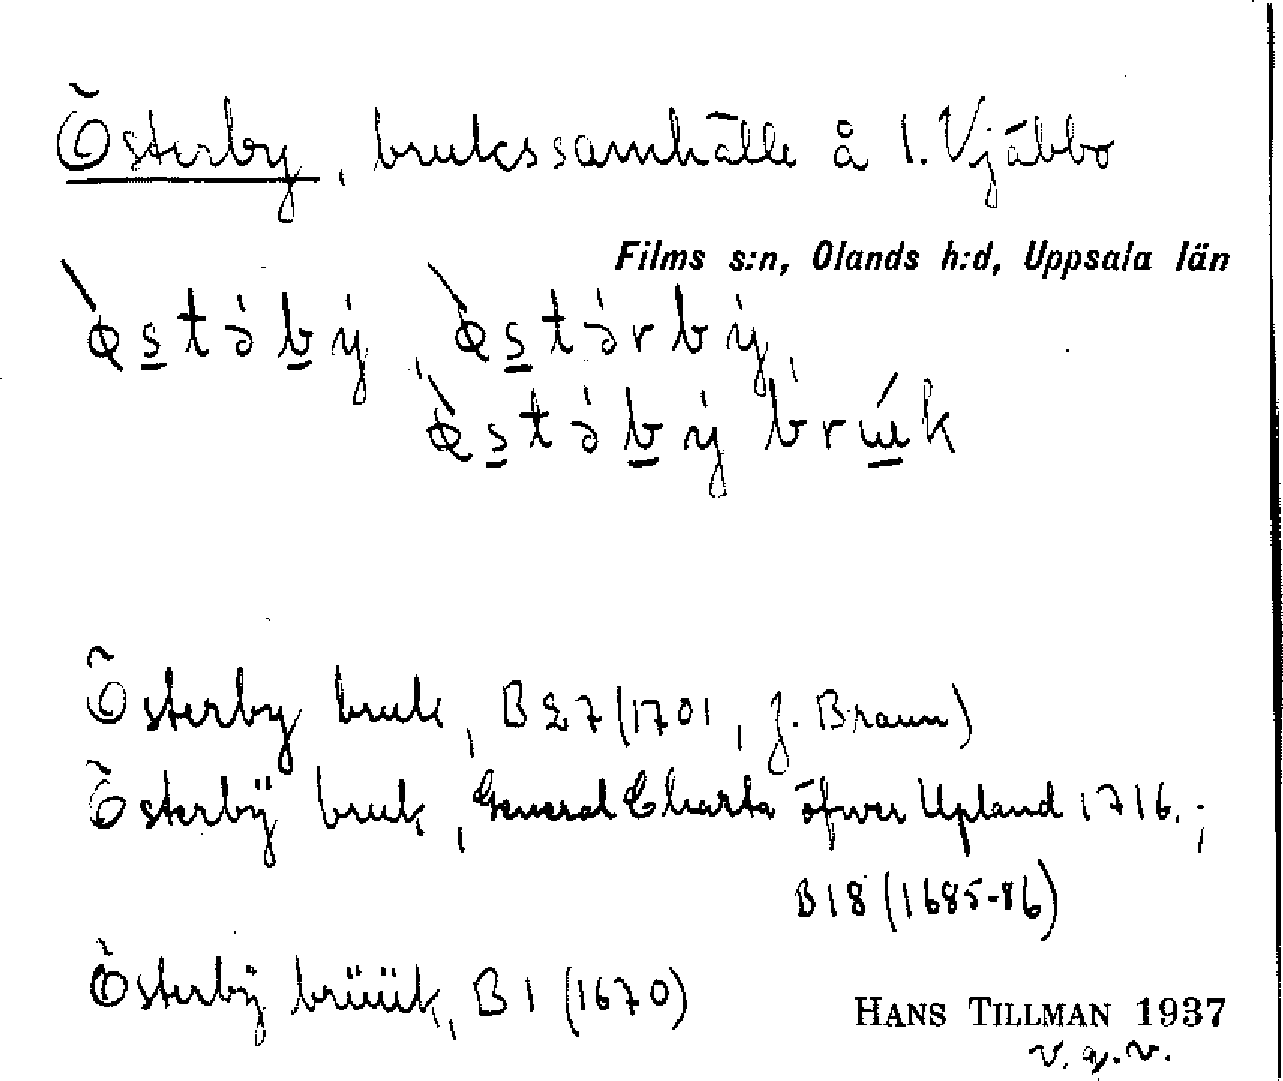 Österby, brukssamhälle å l. Vjäbbo
Films s:n, Olands h:d, Uppsala län
Österby bruk, B 27 (1701, J. Braun)
Österbÿ bruk, General Charta öfwer Upland 1716.;
B 18 (1685-86)
Österbÿ brüük, B 1 (1670)
HANS TILLMAN 1937
v. g. v.